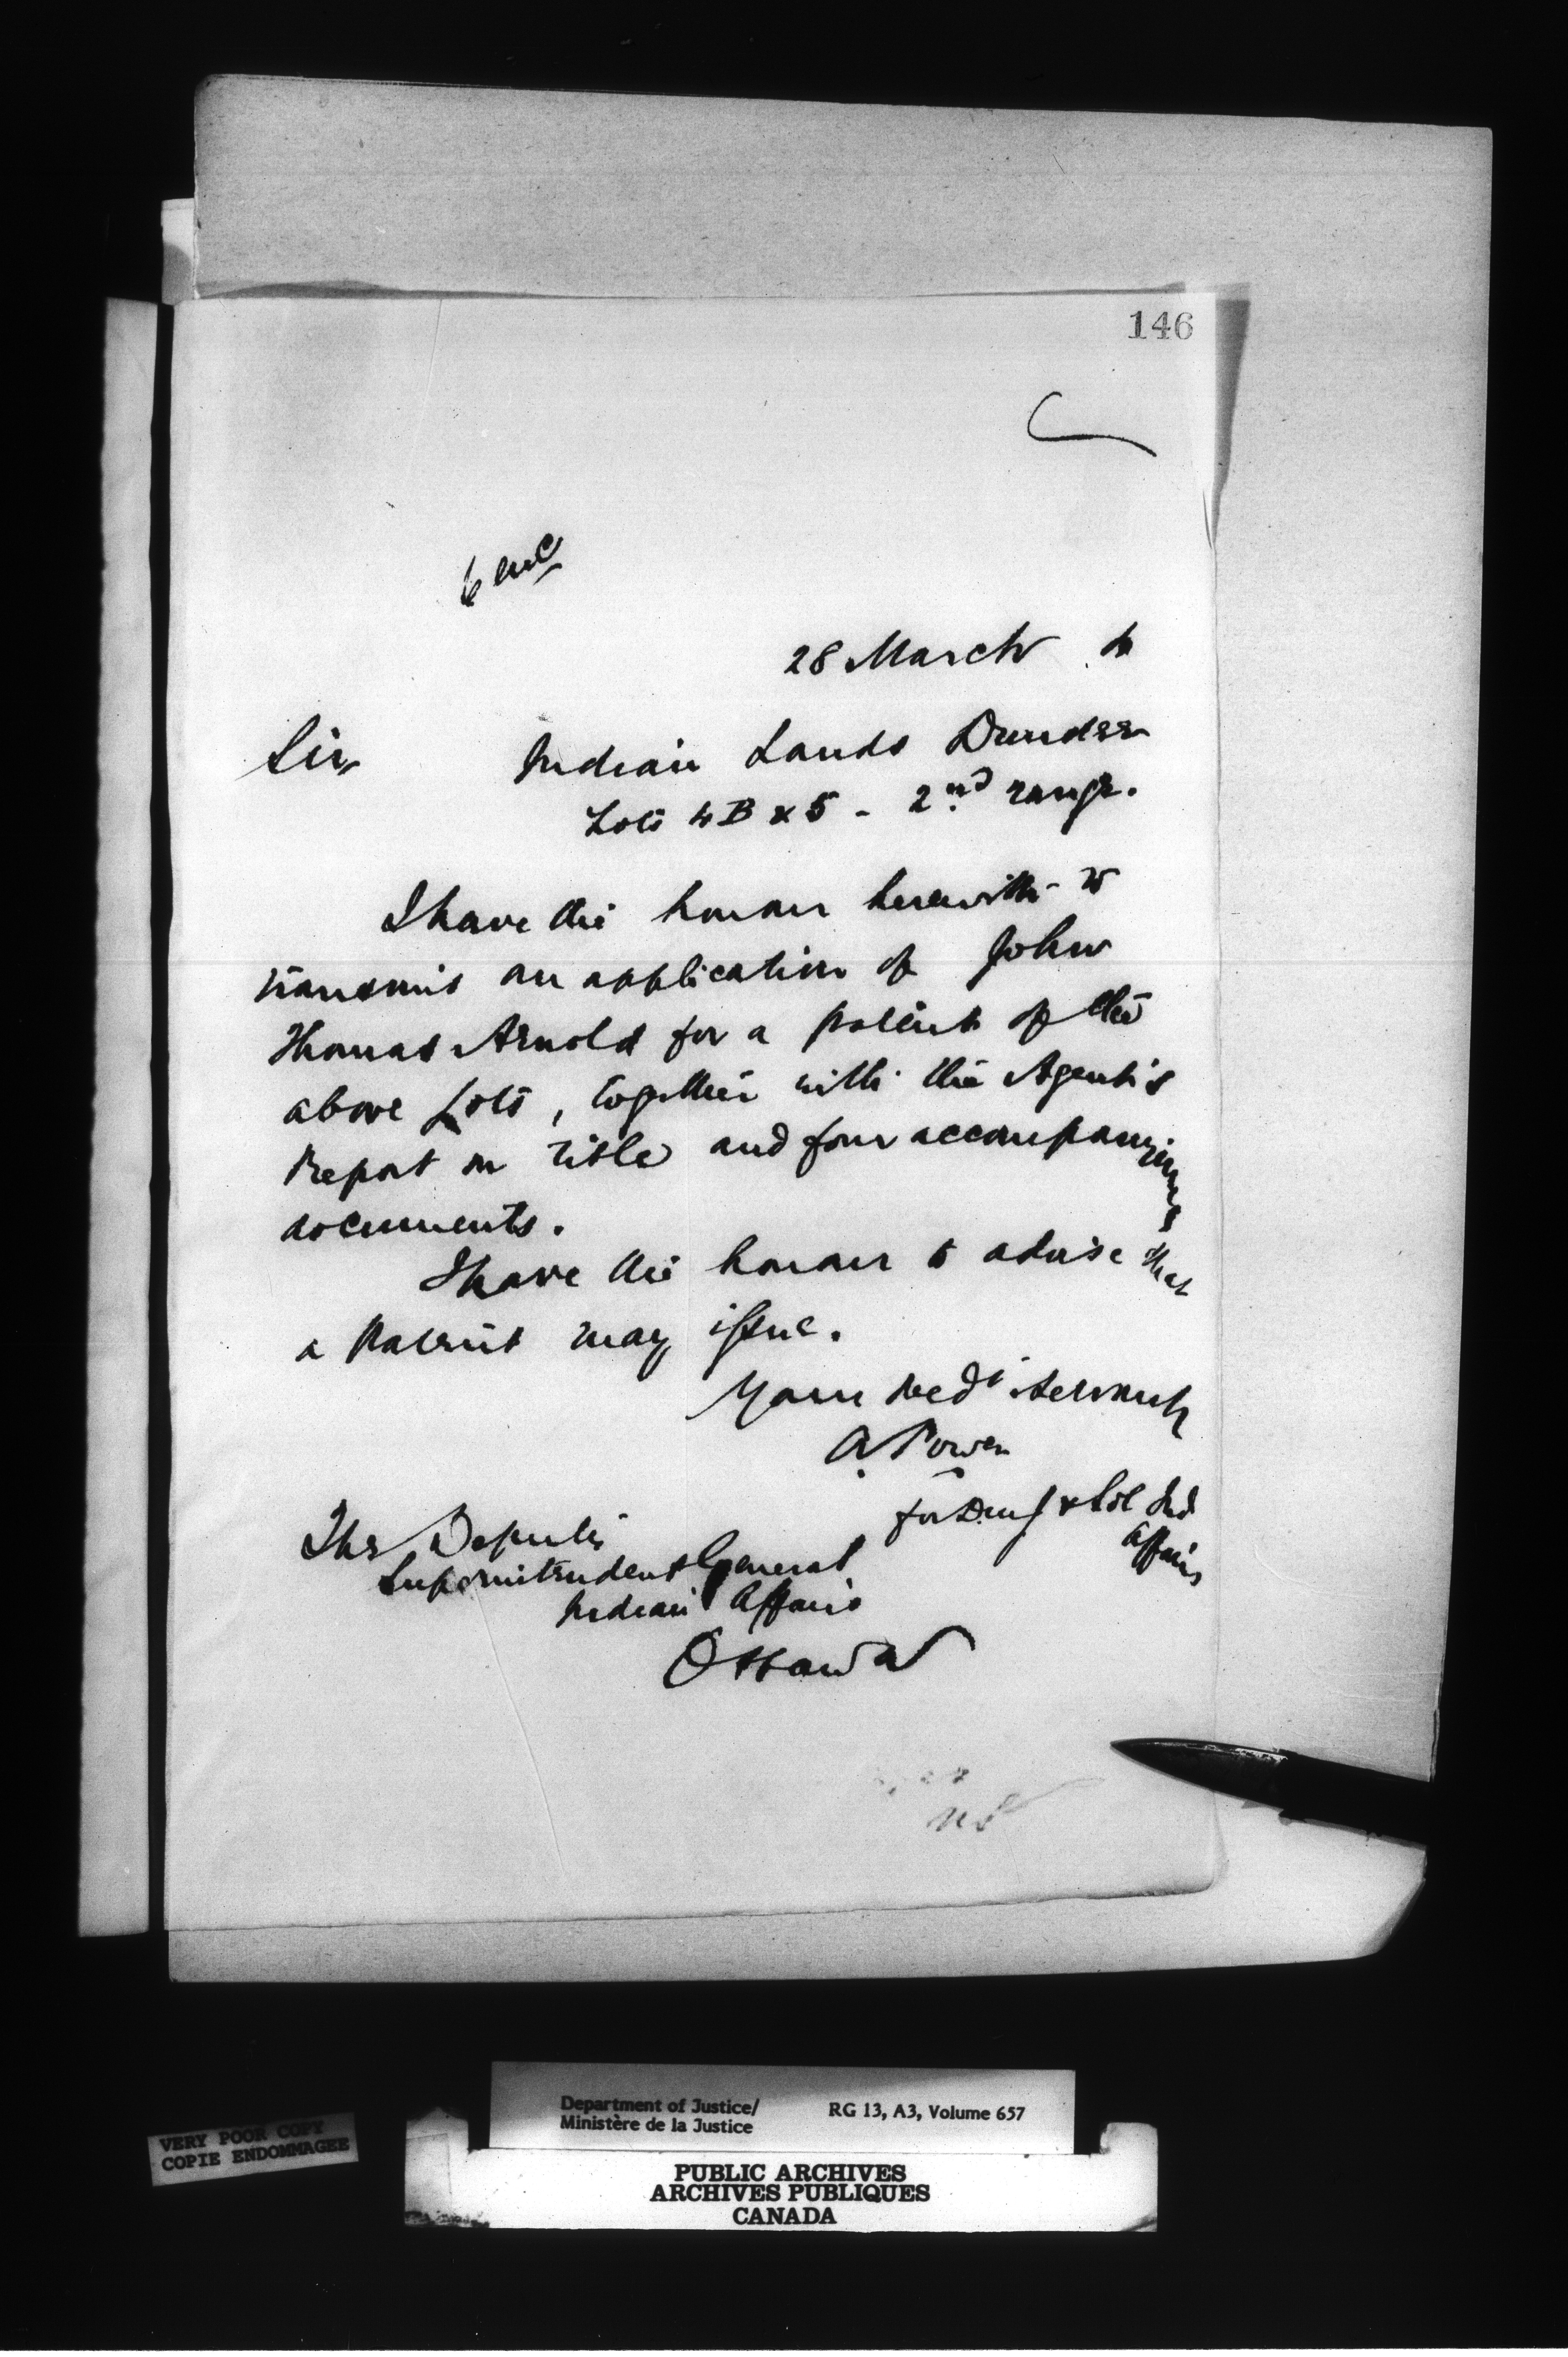 146
6 enc
28 March
Sir,
Indian Lands Dundee
Lots 4B & 5 - 2nd range.
I have the honour herewith to
transmit an application of John
Thomas Arnold for a patent of the
above Lots, together with the Agent's
Report on title and four accompanying
documents.
I have the honour to advise that
a Patent may issue.
Your obedt servant
A Power
for D. M. J & Sol Ind
Affairs
The Deputy
Superintendent General
Indian Affairs
Ottawa
Department of Justice/
Ministère de la Justice
RG 13, A3, Volume 657
VERY POOR COPY
COPIE ENDOMMAGEE
PUBLIC ARCHIVES
ARCHIVES PUBLIQUES
CANADA